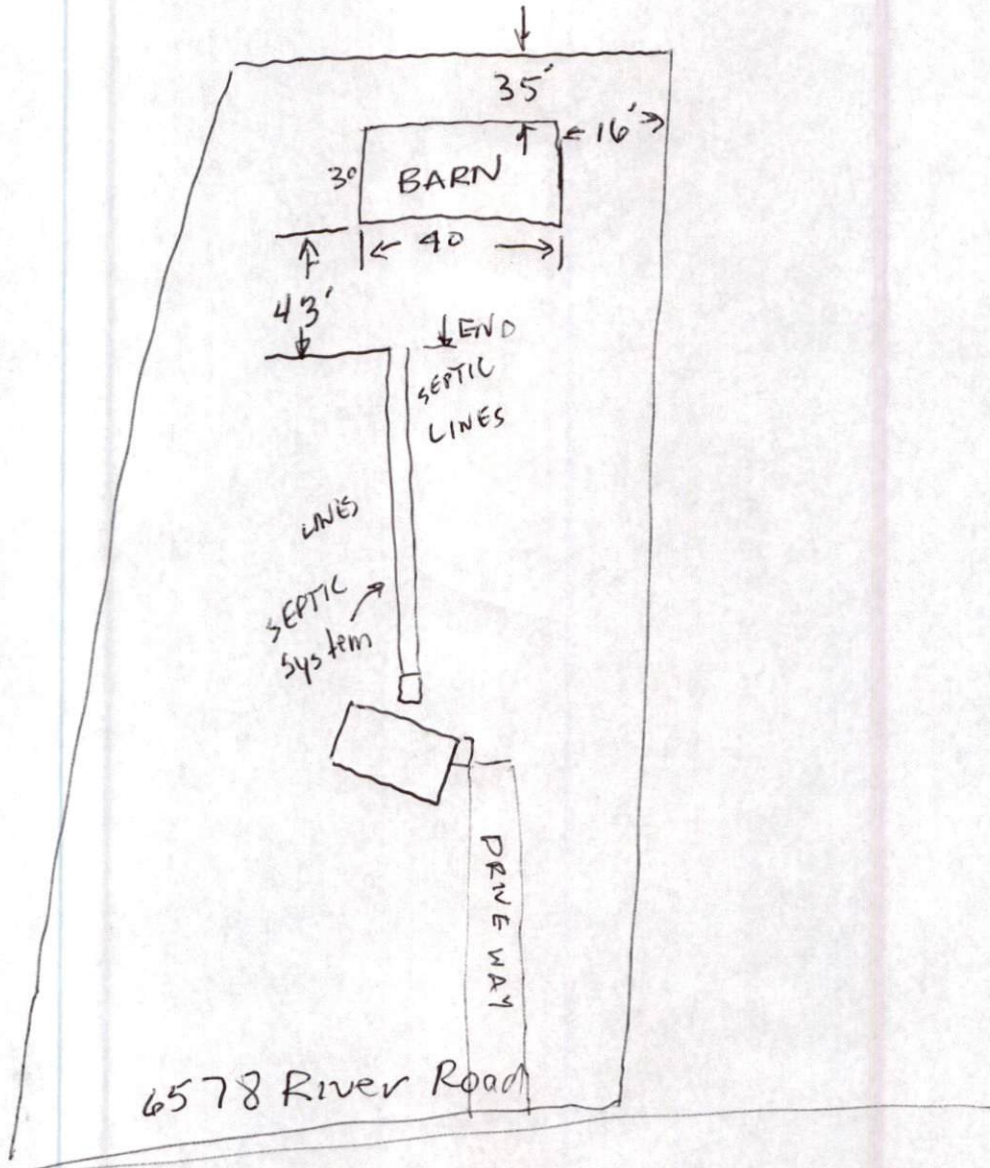 35'
16'
30
BARN
40
43'
END
SEPTIC
LINES
LINES
SEPTIC
System
DRIVE WAY
6578 River Road